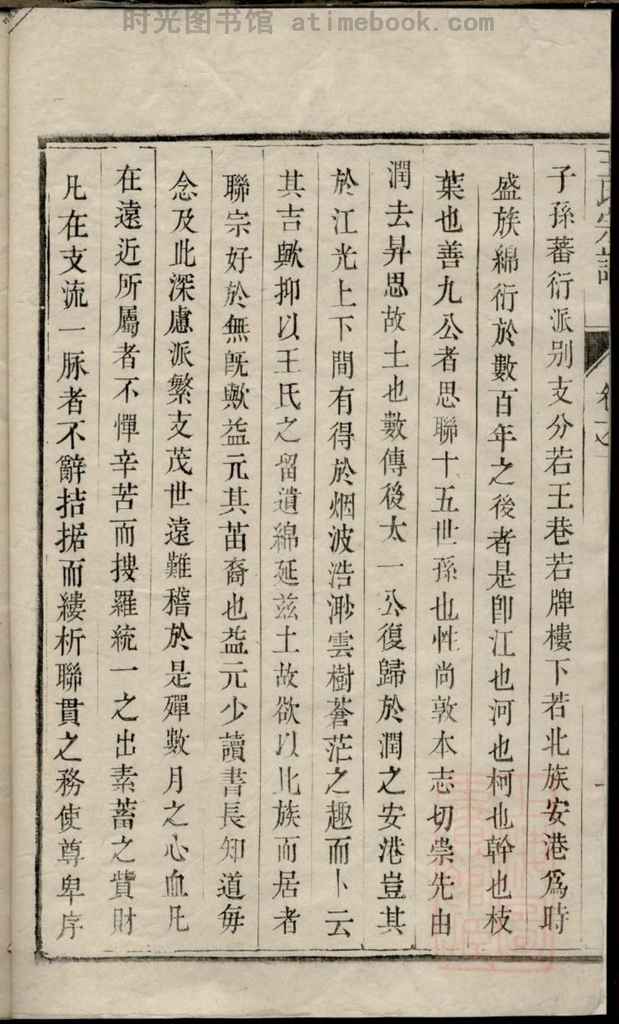 时光图书馆 atimebook.com
王氏宗譜
卷之
一
子孫蕃衍派别支分若王巷若牌樓下若北族安港爲時
盛族綿衍於數百年之後者是卽江也河也柯也幹也枝
葉也善九公者思聯十五世孫也性尚敦本志切崇先由
潤去昇思故土也數傳後太一公復歸於潤之安港豈其
於江光上下間有得於烟波浩渺雲樹蒼茫之趣而卜云
其吉歟抑以王氏之留遺綿延茲土故欲以北族而居者
聯宗好於無旣歟益元其苗裔也益元少讀書長知道每
念及此深慮派繁支茂世遠難稽於是殫數月之心血凡
在遠近所屬者不憚辛苦而搜羅統一之出素蓄之貲財
凡在支流一脉者不辭拮据而縷析聯貫之務使尊卑序